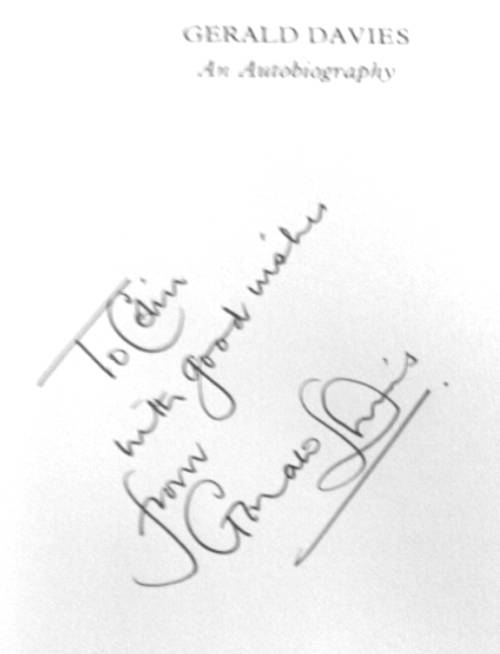 GERALD DAVIES
An Autobiography
To Colin
with good wishes
from Gerald Davies